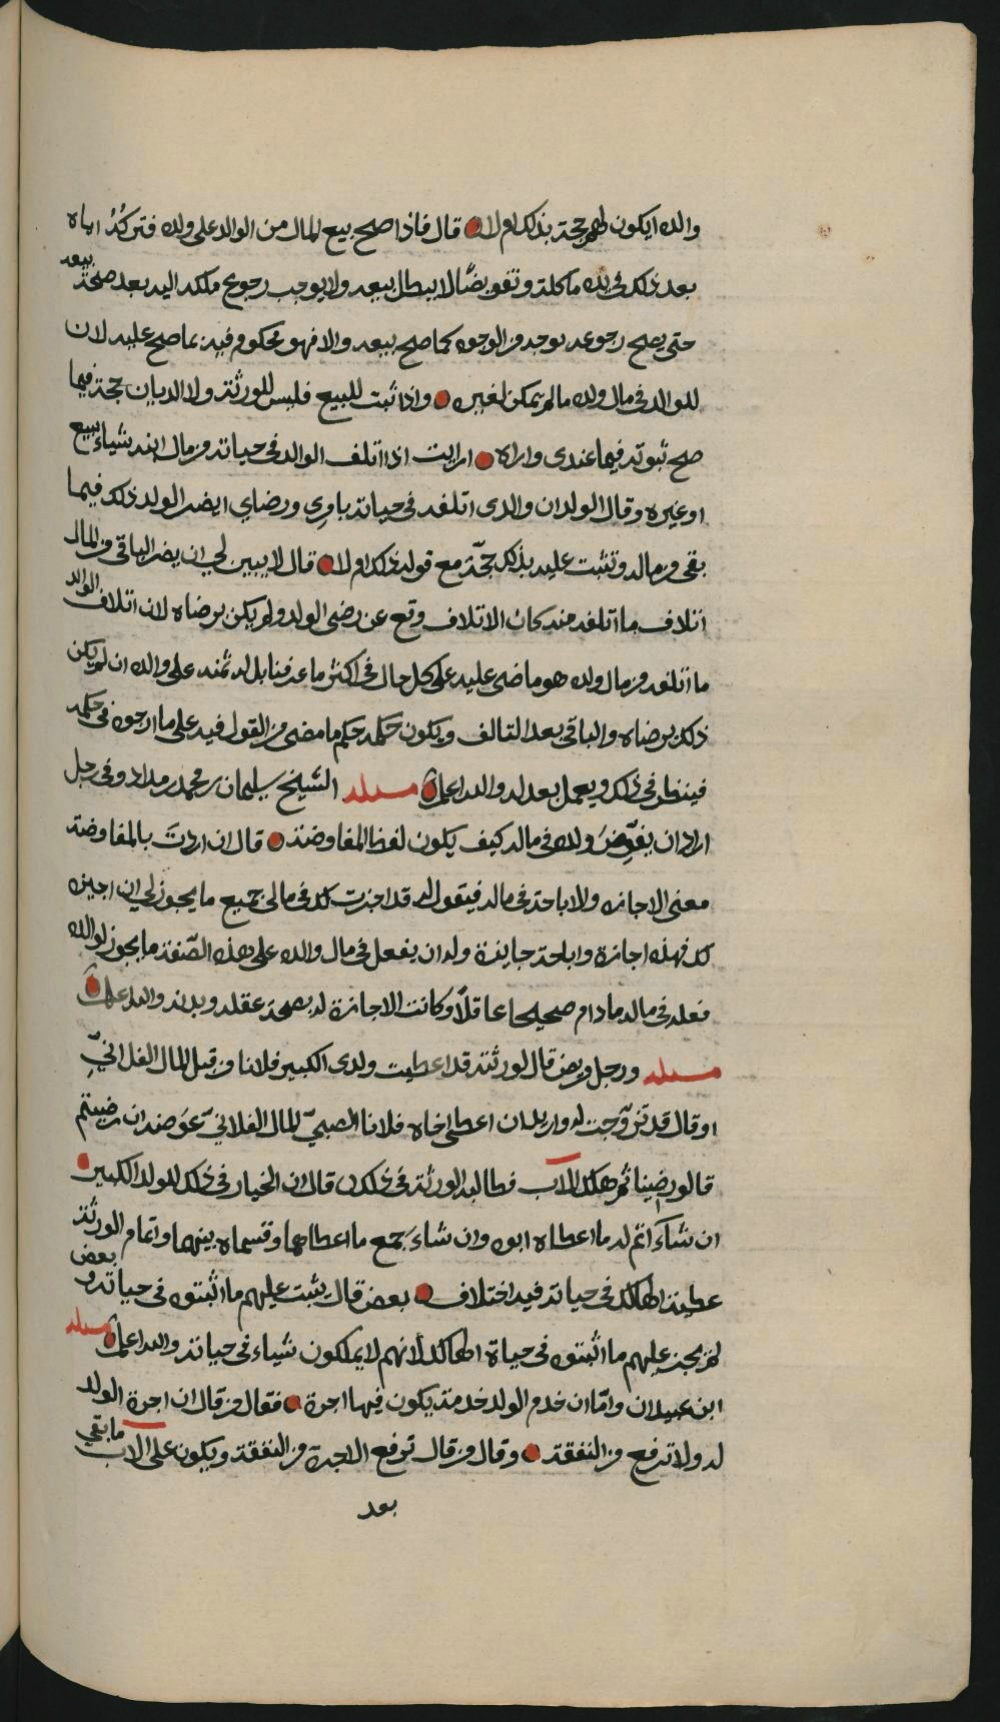 والده ايكون لهم حجة بذلك ام لا قال فاذا صح بيع المال من الوالد على ولده فتركُهُ اياه
بعد ذلك في يده ماكلة وتفويضًا لا يبطل بيعه ولا يوجب رجوع ملكه اليه بعد صحة بيعه
حتى يصح رجوعه بوجه من الوجوه كما صح بيعه والا فهو محكوم فيه بما صح عليه لان
للوالد في مال ولده ما لم يمكن لغيره واذا ثبت البيع فليس للورثة ولا الديان حجة فيما
صح ثبوته فيما عندي واراه ارايت اذا اتلف الوالد في حياته من مال ابنه شياء ببيع
او غيره وقال الولد ان والدي اتلفه في حياته بامري ورضاي ايضر الولد ذلك فيما
بقي من ماله وتثبت عليه بذلك حجّة مع قوله ذلك ام لا قال لا يبين لي ان يضر الباقي من المال
اتلاف ما اتلفه منه كان الاتلاف وقع عن رضى الولد او لم يكن برضاه لان اتلاف الوالد
ما اتلفه من مال ولده هو ماضي عليه على كل حال في اكثر ما عرفنا بل له ثمنه على والده ان لم يكن
ذلك برضاه والباقي بعد التالف ويكون حكمه حكم ما مضى من القول فيه على ما ارجوه في حكمه
فينظر في ذلك ويعمل بعدله والله اعلم مسئله الشيخ سليمان بن محمد بن مداد وفي رجل
اراد ان يفوّضَ ولده في ماله كيف يكون لفظ المفاوضة قال ان اردتَ بالمفاوضة
معنى الاجازه والاباحة في ماله فيقول له قد اجزت لك في مالي جميع ما يجوز لي ان اجيزه
لك فهذه اجازة واباحة جايزة وله ان يفعل في مال والده على هذه الصّفة ما يجوز لوالده
فعله في ماله ما دام صحيحا عاقلاً وكانت الاجازة له بصحة عقله وبدنه والله اعلم
مسئله ورجل مرض قال لورثته قد اعطيت ولدي الكبير فلانا من قبل المال الفلانيّ
او قال قد تزّوجت له واريد ان اعطي اخاه فلانا الصبيّ المال الفلانيّ عوضه ان رضيتم
قالو رضينا ثم هلك الاب فطالبه الورثة في ذلك قال ان الخيار في ذلك للولد الكبير
ان شاءَ اتم له ما اعطاه ابوه وان شاءَ جمع ما اعطاهما وقسماه بينهما واتمام الورثة
عطية الهالك في حياته فيه اختلاف بعض قال يثبت عليهم ما اثبتوه في حياته وبعض
لم يجز عليهم ما اثبتوه في حياة الهالك لأنهم لا يملكون شياء في حياته والله اعلم مسئله
ابن عبيدان وامّا ان خدم الولد خدمة يكون فيها اجرة فقال من قال ان اجرة الولد
له ولا ترفع من النفقة وقال من قال ترفع الاجرة من النفقة ويكون على الاب ما بقي
بعد